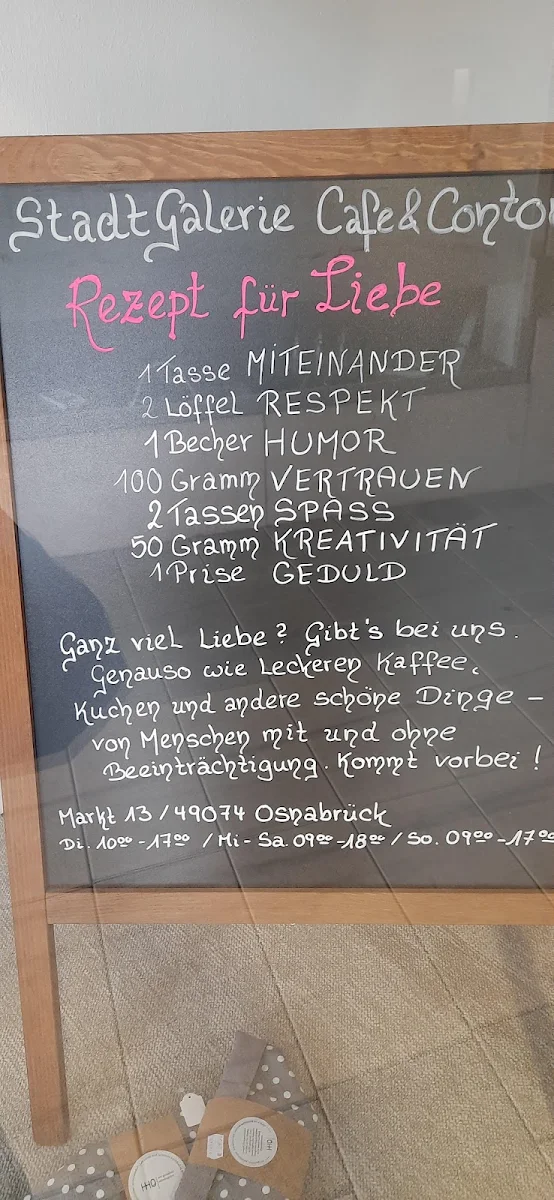 StadtGalerie Cafe & Contor
Rezept für Liebe
1 Tasse MITEINANDER
2 Löffel RESPEKT
1 Becher HUMOR
100 Gramm VERTRAUEN
2 Tassen SPASS
50 Gramm KREATIVITÄT
1 Prise GEDULD
Ganz viel Liebe? Gibt's bei uns.
Genauso wie Leckeren Kaffee,
Kuchen und andere schöne Dinge –
von Menschen mit und ohne
Beeinträchtigung. Kommt vorbei!
Markt 13 / 49074 Osnabrück
Di. 10⁰⁰ - 17⁰⁰ / Mi - Sa. 09⁰⁰ - 18⁰⁰ / So. 09⁰⁰ - 17⁰⁰